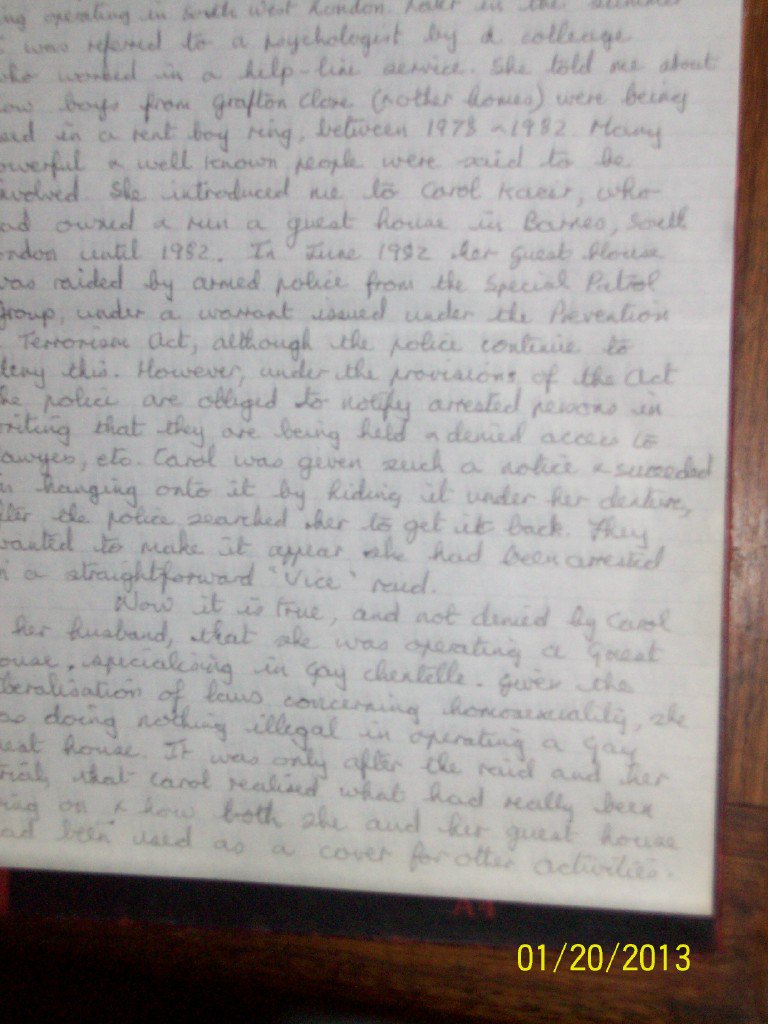 ing operating in South West London. Later in the summer
I was referred to a psychologist by a colleage
who worked in a help-line service. She told me about
how boys from Grafton Close (& other homes) were being
used in a rent boy ring, between 1978 & 1982. Many
owerful & well known people were said to be
nvolved. She introduced me to Carol Kasir, who
ad owned & run a guest house in Barnes, South
ondon until 1982. In June 1982 her guest House
was raided by armed police from the Special Patrol
Group, under a warrant issued under the Prevention
Terrorism Act, although the police continue to
deny this. However, under the provisions of the Act
the police are obliged to notify arrested persons in
writing that they are being held & denied access to
lawyes, etc. Carol was given such a notice & succeeded
n hanging onto it by hiding it under her denture,
fter the police searched her to get it back. They
wanted to make it appear she had been arrested
n a straightforward "Vice" raid.
Now it is true, and not denied by Carol
her husband, that she was operating a Guest
ouse, specialising in Gay chentelle. Given the
beralisation of laws concerning homosexuality, she
as doing nothing illegal in operating a Gay
uest house. It was only after the raid and her
trial, that Carol realised what had really been
oing on & how both she and her guest house
ad been used as a cover for other activities.
A4
01/20/2013